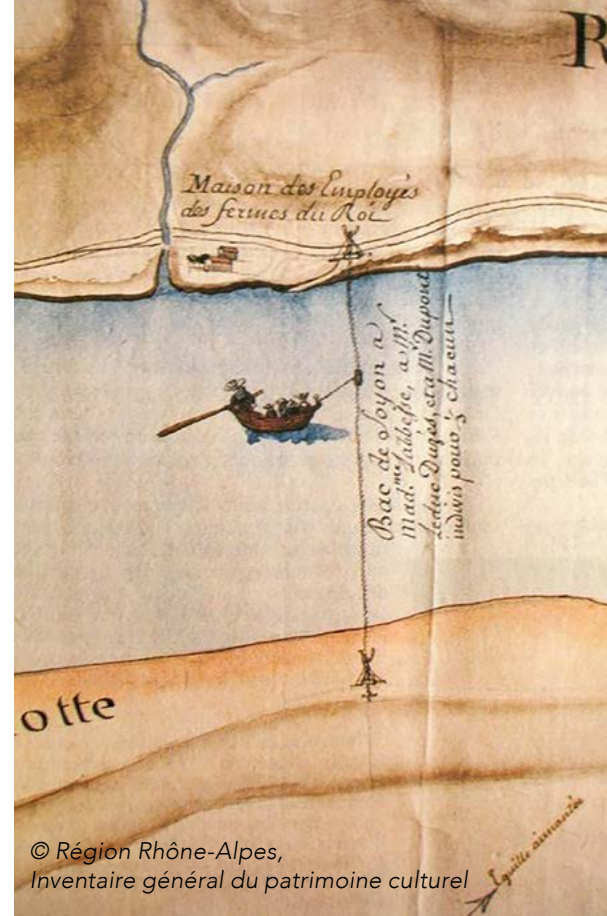 R
Maison des Employés
des fermes du Roi
Bac de Soyon a
Mad.me Labbesse, a M.r
Leduc Dugès, et a M. Dupont
indivis pour ⅓ chacun
otte
Eguille aimantée
© Région Rhône-Alpes,
Inventaire général du patrimoine culturel